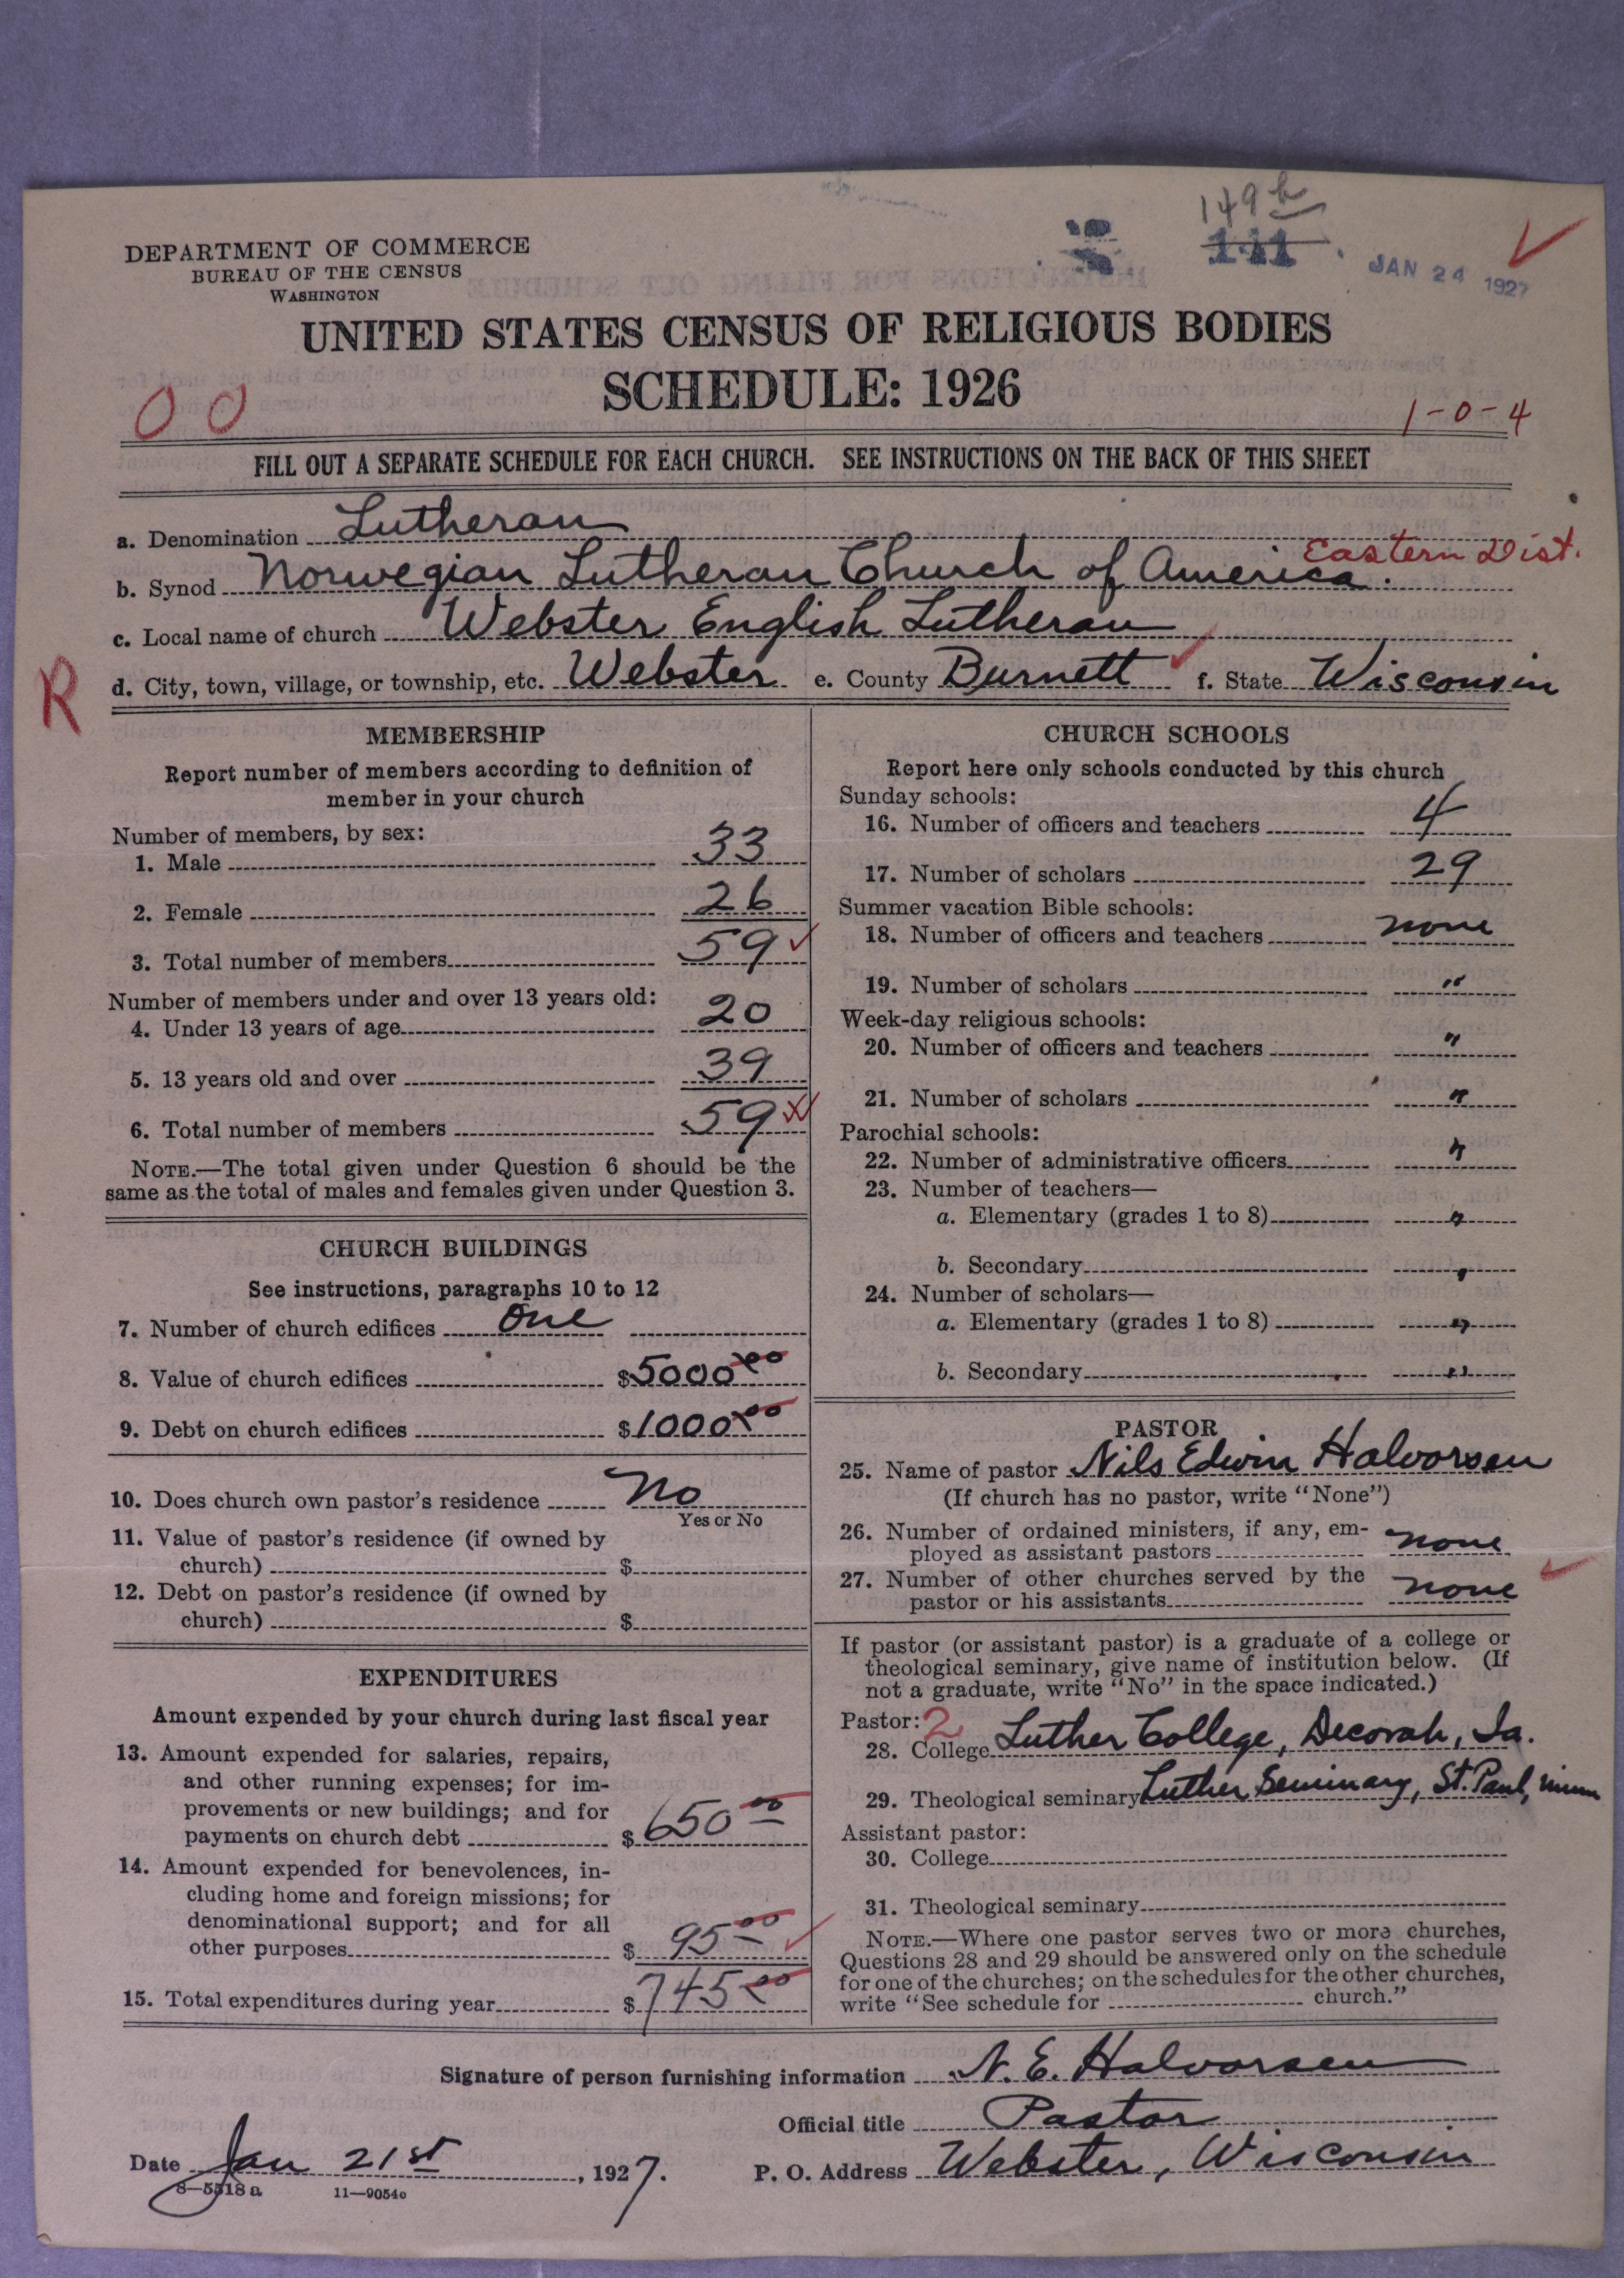 149 b
111
JAN 24 1927
DEPARTMENT OF COMMERCE
BUREAU OF THE CENSUS
WASHINGTON
UNITED STATES CENSUS OF RELIGIOUS BODIES
SCHEDULE: 1926
0 0
1-0-4
FILL OUT A SEPARATE SCHEDULE FOR EACH CHURCH. SEE INSTRUCTIONS ON THE BACK OF THIS SHEET
a. Denomination Lutheran
Eastern Dist.
b. Synod Norwegian Lutheran Church of America.
c. Local name of church Webster English Lutheran
R
d. City, town, village, or township, etc. Webster e. County Burnett f. State Wisconsin
MEMBERSHIP
Report number of members according to definition of
member in your church
Number of members, by sex:
1. Male 33
2. Female 26
3. Total number of members 59
Number of members under and over 13 years old:
4. Under 13 years of age 20
5. 13 years old and over 39
6. Total number of members 59
NOTE.—The total given under Question 6 should be the
same as the total of males and females given under Question 3.
CHURCH BUILDINGS
See instructions, paragraphs 10 to 12
7. Number of church edifices One
8. Value of church edifices $5000 00
9. Debt on church edifices $1000 00
10. Does church own pastor's residence No
Yes or No
11. Value of pastor's residence (if owned by
church) $
12. Debt on pastor's residence (if owned by
church) $
EXPENDITURES
Amount expended by your church during last fiscal year
13. Amount expended for salaries, repairs,
and other running expenses; for im-
provements or new buildings; and for
payments on church debt $650 00
14. Amount expended for benevolences, in-
cluding home and foreign missions; for
denominational support; and for all
other purposes $95 00
15. Total expenditures during year $745 00
CHURCH SCHOOLS
Report here only schools conducted by this church
Sunday schools:
16. Number of officers and teachers 4
17. Number of scholars 29
Summer vacation Bible schools:
18. Number of officers and teachers none
19. Number of scholars "
Week-day religious schools:
20. Number of officers and teachers "
21. Number of scholars "
Parochial schools:
22. Number of administrative officers "
23. Number of teachers—
a. Elementary (grades 1 to 8) "
b. Secondary "
24. Number of scholars—
a. Elementary (grades 1 to 8) "
b. Secondary "
PASTOR
25. Name of pastor Nils Edwin Halvorsen
(If church has no pastor, write "None")
26. Number of ordained ministers, if any, em-
ployed as assistant pastors none
27. Number of other churches served by the
pastor or his assistants none
If pastor (or assistant pastor) is a graduate of a college or
theological seminary, give name of institution below. (If
not a graduate, write "No" in the space indicated.)
Pastor: 2
28. College Luther College, Decorah, Ia.
29. Theological seminary Luther Seminary, St. Paul, Minn
Assistant pastor:
30. College
31. Theological seminary
NOTE.—Where one pastor serves two or more churches,
Questions 28 and 29 should be answered only on the schedule
for one of the churches; on the schedules for the other churches,
write "See schedule for church."
Signature of person furnishing information N. E. Halvorsen
Official title Pastor
Date Jan 21st, 1927.
P. O. Address Webster, Wisconsin
8—5518a
11—9054c